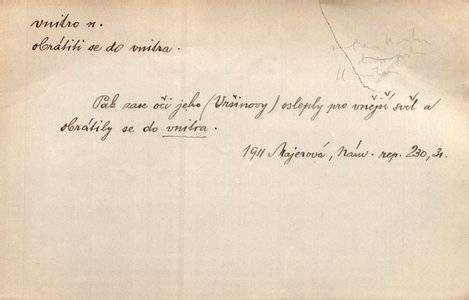 vnitro n.
obrátiti se do vnitra.
Pak zase oči jeho (Vršinovy) osleply pro vnější svět a
obrátily se do vnitra.
1911 Majerová, Nám. rep. 230, 31.